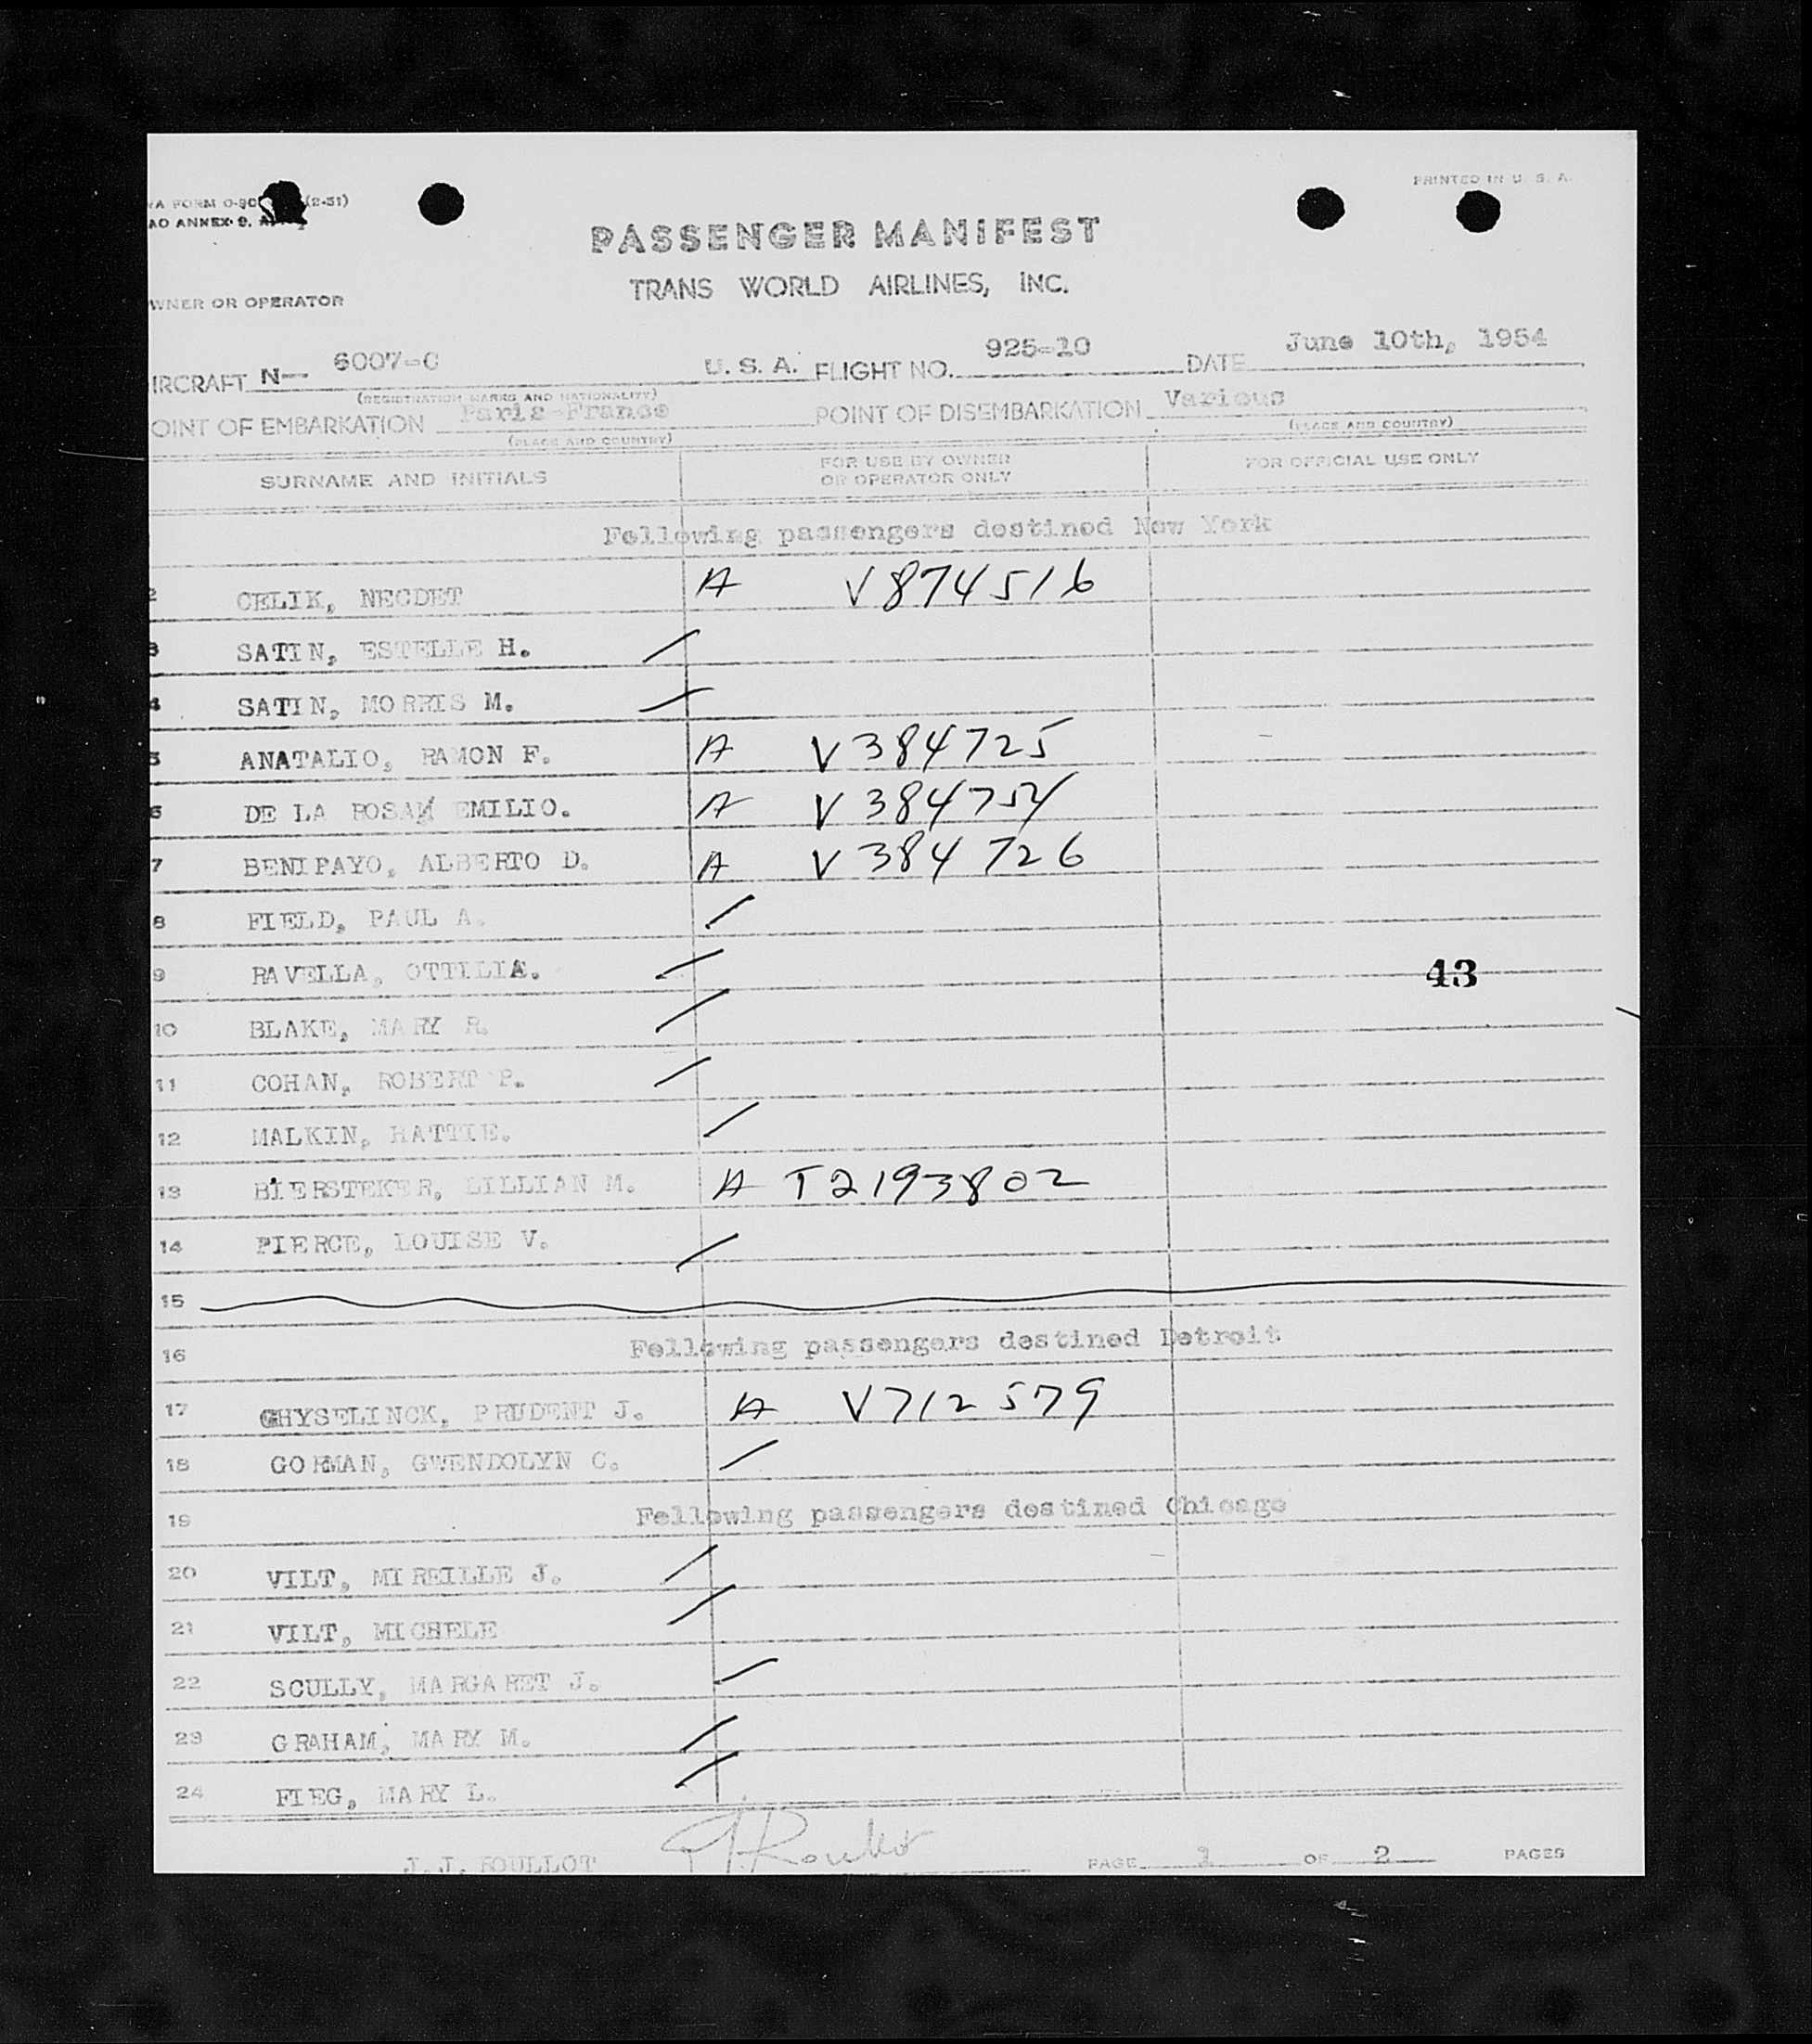 PRINTED IN U. S. A.
WA FORM 0-90 (2-51)
AO ANNEX 9,
PASSENGER MANIFEST
TRANS WORLD AIRLINES, INC.
WNER OR OPERATOR
IRCRAFT N- 6007-C U. S. A. FLIGHT NO. 925-10 DATE June 10th, 1954
(REGISTRATION MARKS AND NATIONALITY)
OINT OF EMBARKATION Paris-France POINT OF DISEMBARKATION Various
(PLACE AND COUNTRY) (PLACE AND COUNTRY)
SURNAME AND INITIALS FOR USE BY OWNER OR OPERATOR ONLY FOR OFFICIAL USE ONLY
Following passengers destined New York
2 CELIK, NECDET A V874516
3 SATIN, ESTELLE H.
4 SATIN, MORRIS M.
5 ANATALIO, RAMON F. A V384725
6 DE LA ROSA, EMILIO. A V384754
7 BENIPAYO, ALBERTO D. A V384726
8 FIELD, PAUL A.
9 RAVELLA, OTTILIA.
43
10 BLAKE, MARY R.
11 COHAN, ROBERT P.
12 MALKIN, HATTIE.
13 BIERSTEKER, LILLIAN M. A T2193802
14 PIERCE, LOUISE V.
15
16 Following passengers destined Detroit
17 GHYSELINCK, PRUDENT J. A V712579
18 GORMAN, GWENDOLYN C.
19 Following passengers destined Chicago
20 VILT, MIREILLE J.
21 VILT, MICHELE
22 SCULLY, MARGARET J.
23 GRAHAM, MARY M.
24 FIEG, MARY L.
J. J. ROULLOT J. Roullot PAGE 1 OF 2 PAGES